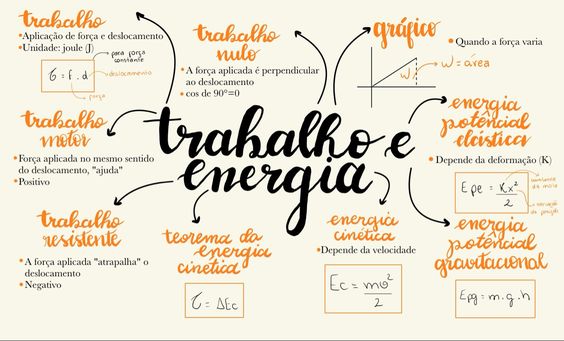 trabalho
• Aplicação de força e deslocamento
• Unidade: joule (J)
para força
constante
τ = f . d
deslocamento
força
trabalho
nulo
• A força aplicada é perpendicular
ao deslocamento
• cos de 90°=0
gráfico
• Quando a força varia
W
W = área
trabalho
motor
• Força aplicada no mesmo sentido
do deslocamento, "ajuda"
• Positivo
trabalho e
energia
energia
potêncial
elástica
• Depende da deformação (K)
Epe = Kx²/2
constante
da mola
variação
da posição
trabalho
resistente
• A força aplicada "atrapalha" o
deslocamento
• Negativo
teorema da
energia
cinética
τ = ΔEc
energia
cinética
• Depende da velocidade
Ec = mv²/2
energia
potêncial
gravitacional
Epg = m.g.h